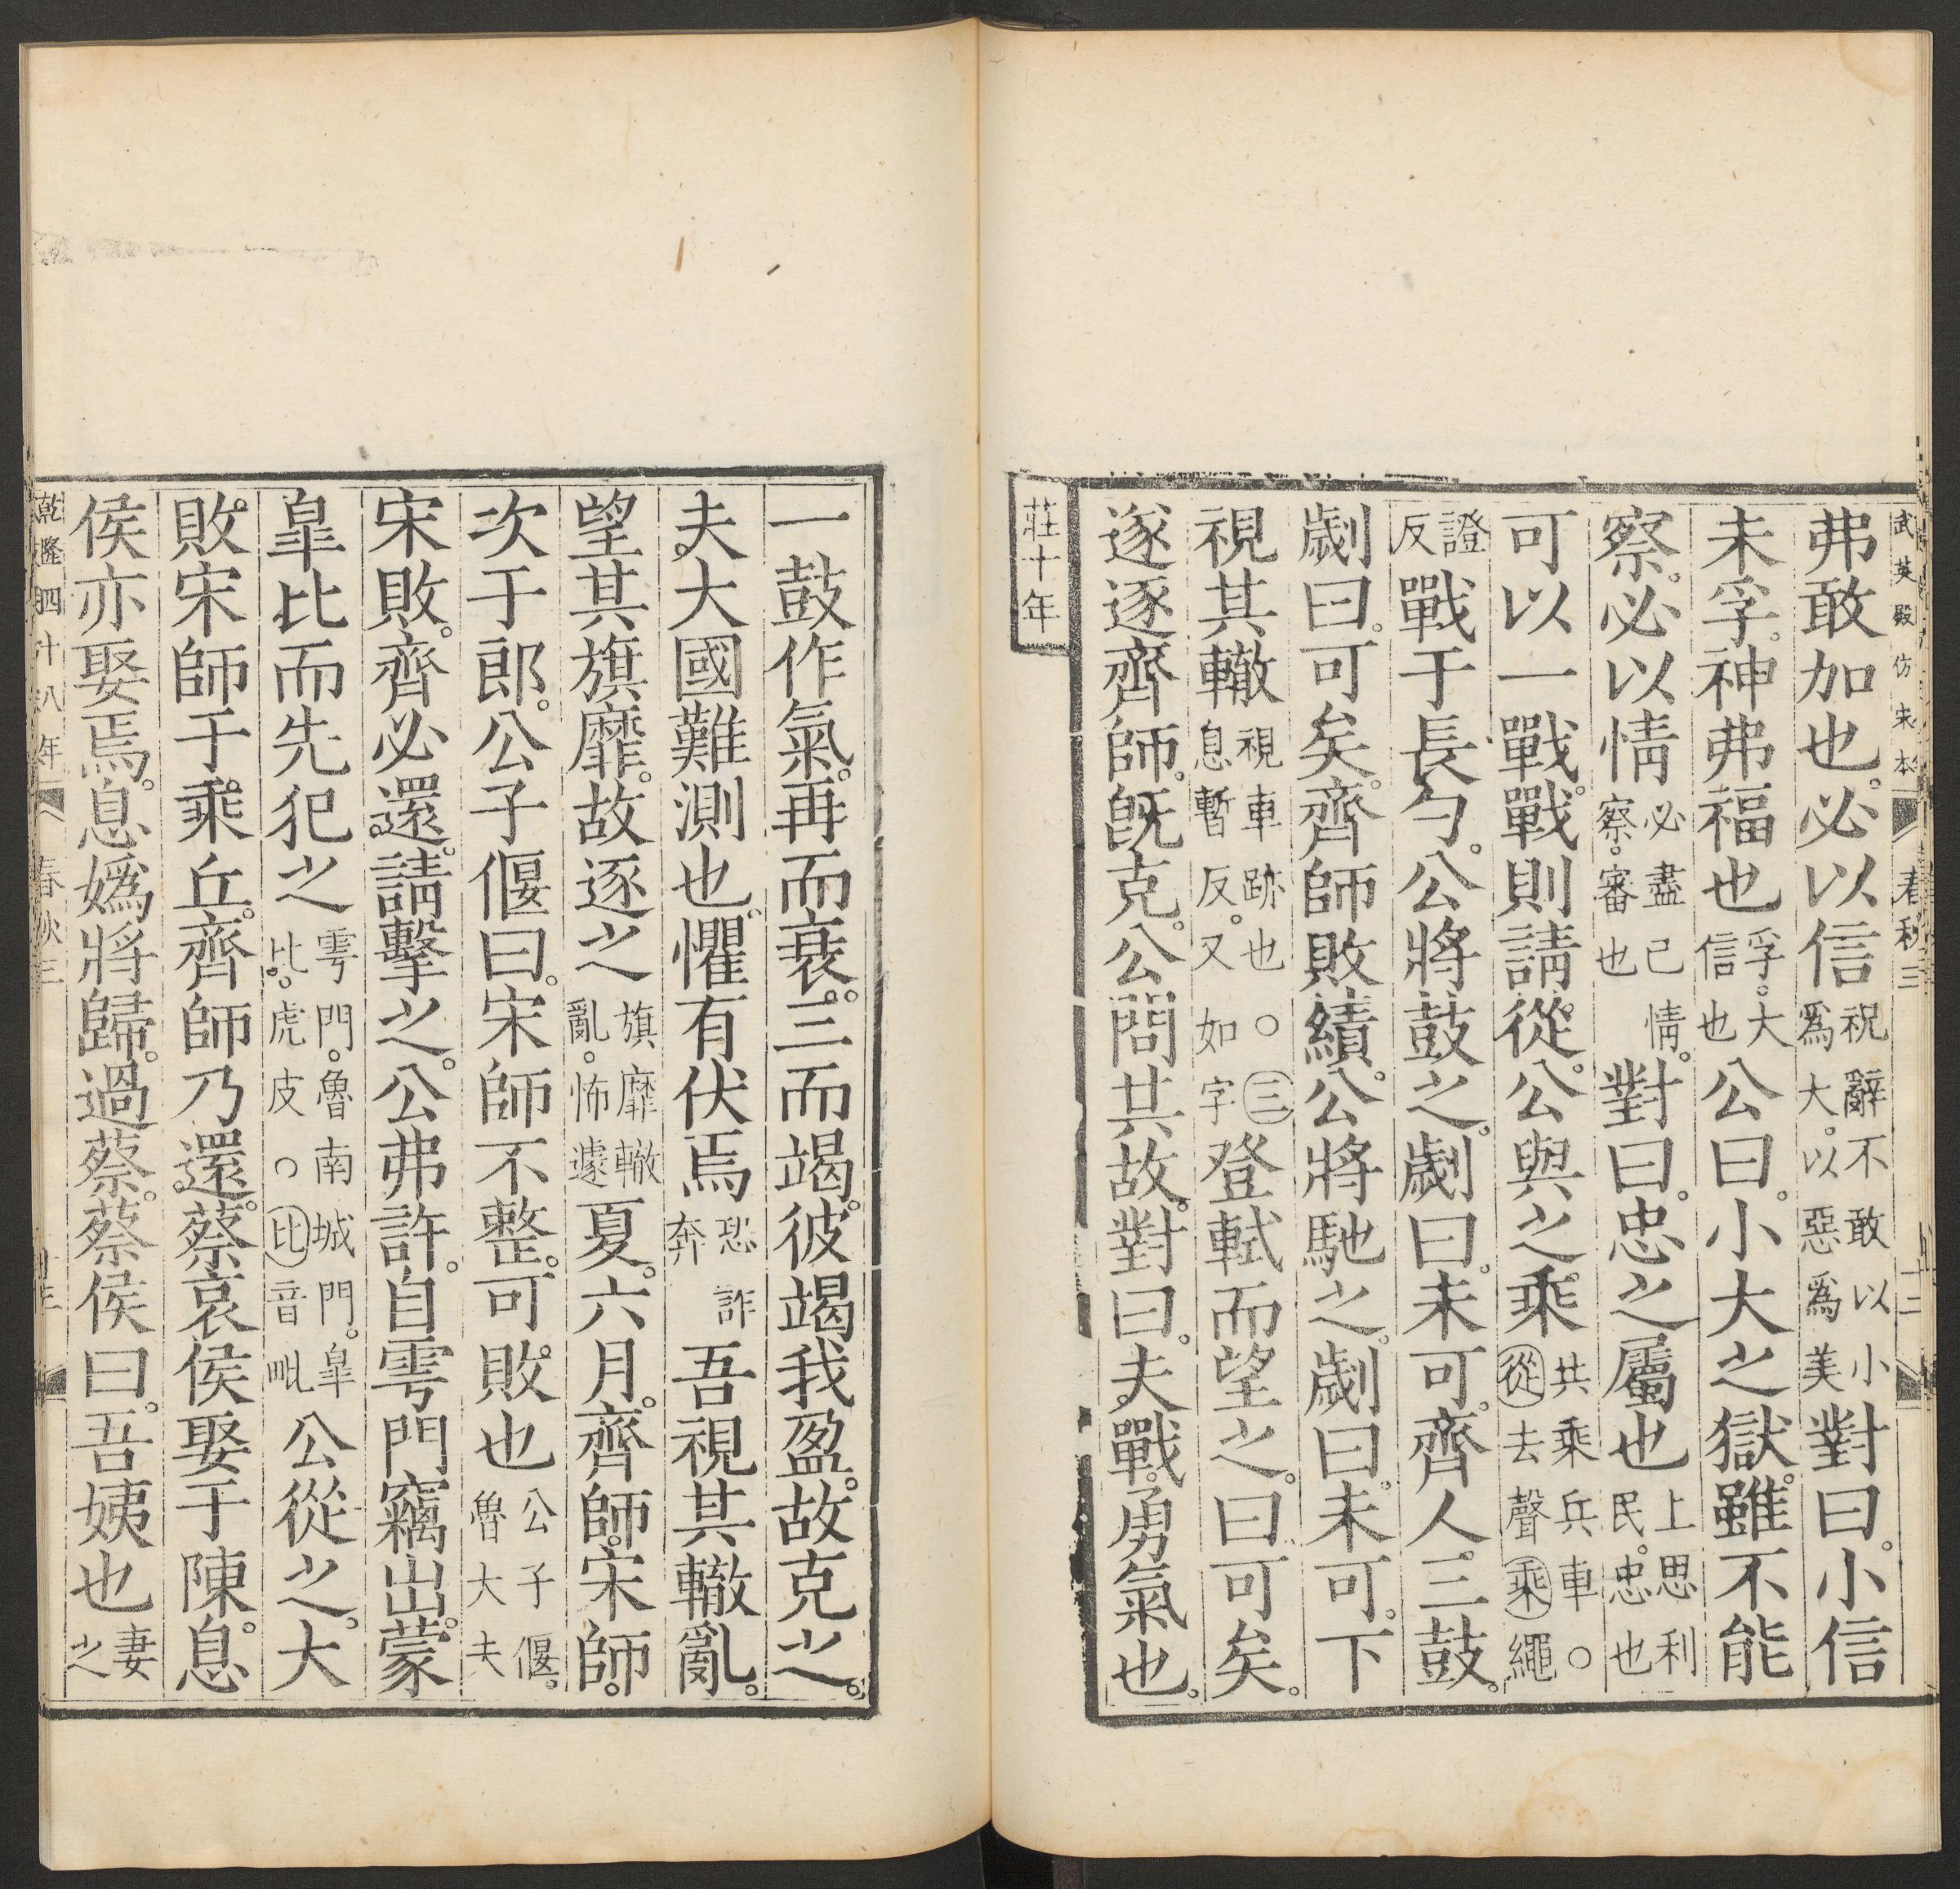 武英殿仿宋本 春秋三 十二
弗敢加也。必以信祝辭不敢以小爲大。以惡爲美對曰。小信
未孚。神弗福也孚。大信也公曰。小大之獄。雖不能
察。必以情必盡己情。察。審也對曰。忠之屬也上思利民。忠也
可以一戰。戰則請從。公與之乘共乘兵車○從去聲乘繩
證反戰于長勺。公將鼓之。劌曰。未可。齊人三鼓。
劌曰。可矣。齊師敗績。公將馳之。劌曰。未可。下
視其轍視車跡也○三息暫反。又如字登軾而望之。曰可矣。
遂逐齊師。既克。公問其故。對曰。夫戰。勇氣也。
莊十年
一鼓作氣。再而衰。三而竭。彼竭我盈。故克之。
夫大國難測也。懼有伏焉恐詐奔吾視其轍亂。
望其旗靡。故逐之旗靡轍亂。怖遽夏。六月。齊師。宋師。
次于郎。公子偃曰。宋師不整。可敗也公子偃。魯大夫
宋敗。齊必還。請擊之。公弗許。自雩門竊出。蒙
皐比而先犯之雩門。魯南城門。皐比。虎皮○比音毗公從之。大
敗宋師于乘丘。齊師乃還。蔡哀侯娶于陳。息
侯亦娶焉。息嬀將歸。過蔡。蔡侯曰。吾姨也妻之
乾隆四十八年 春秋三